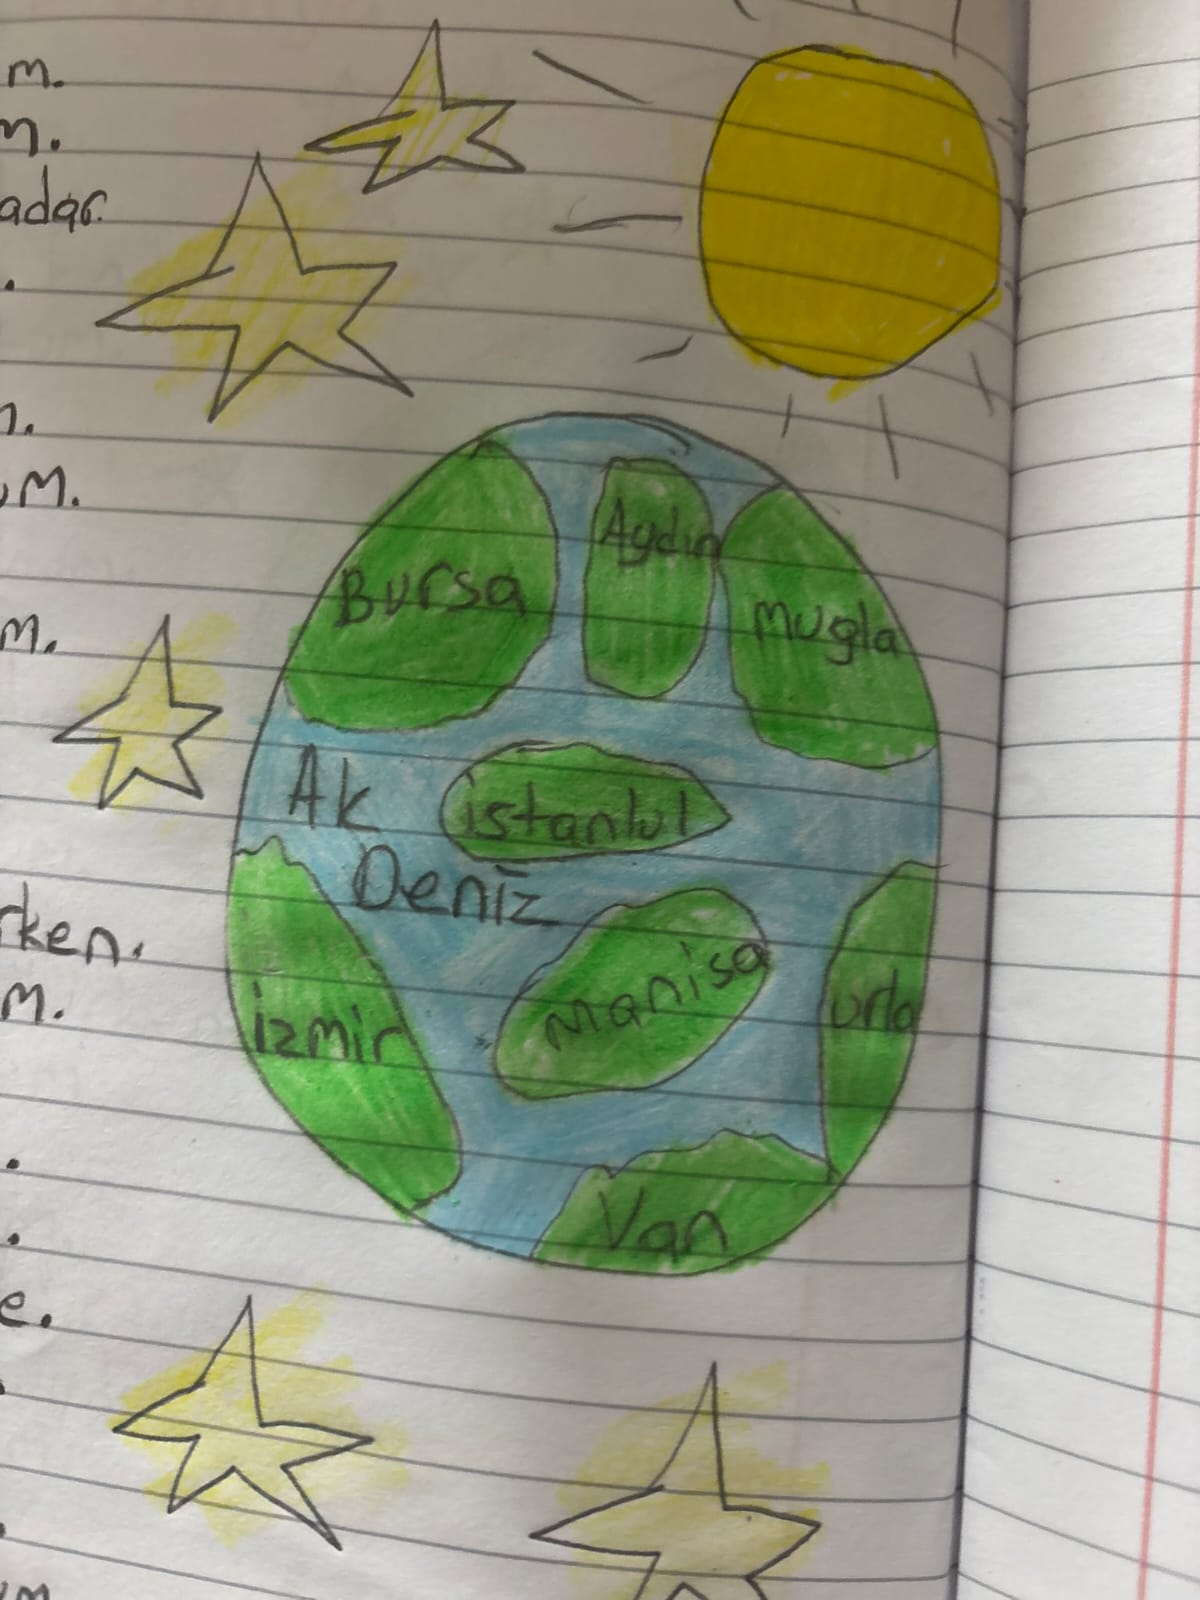 m.
m.
adar.
.
m.
um.
m.
rken.
m.
.
.
e.
.
.
um
Bursa
Aydın
mugla
Ak
istanbul
Deniz
izmir
manisa
urla
Van